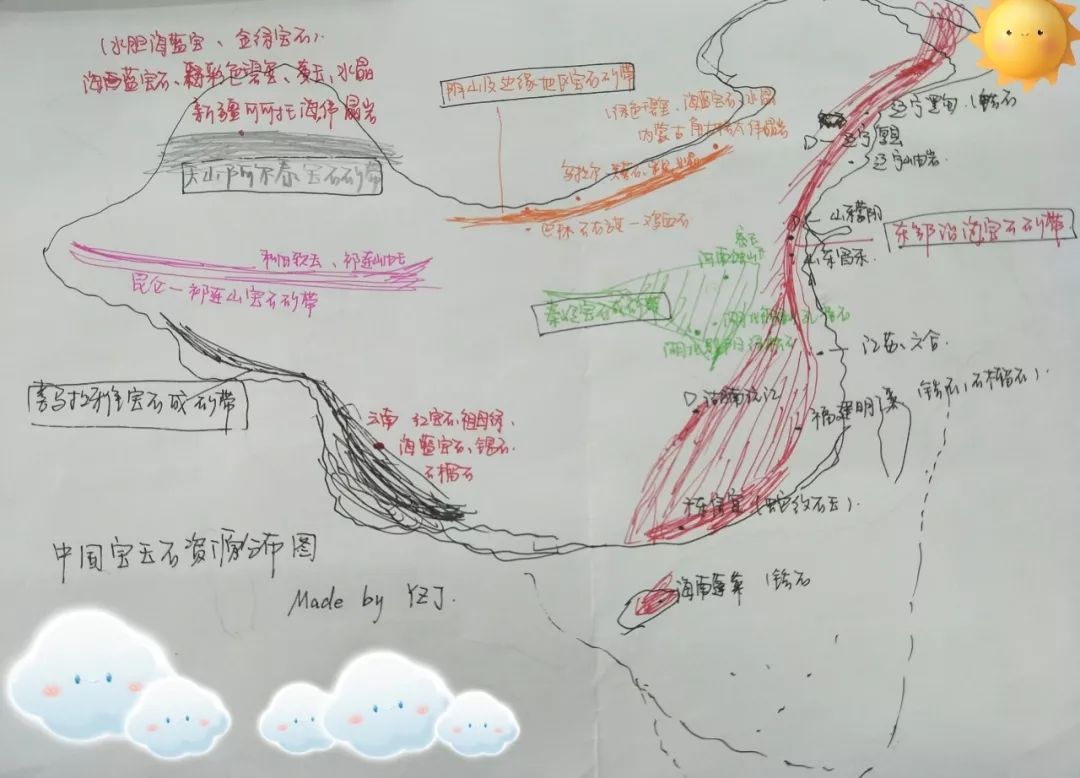 (水胆海蓝宝、金绿宝石).
海蓝宝石、彩色碧玺、黄玉、水晶
新疆可可托海伟晶岩
天山阿尔泰宝石矿带
阴山及边缘地区宝石矿带
(绿色碧玺、海蓝宝石、水晶
内蒙古角力格太伟晶岩
乌拉尔
巴林石 鸡血石
和田软玉、祁连山玉
昆仑—祁连山宝石矿带
秦岭宝石成矿带
喜马拉雅宝石成矿带
云南 红宝石、祖母绿、
海蓝宝石、锂石、
石榴石
辽宁宽甸 (锆石
辽宁
辽宁岫岩
山东蒙阴
山东昌乐
东部沿海宝石矿带
江苏、六合
湖南沅江
福建明溪 (锆石,石榴石).
广东信宜 (蛇纹石玉).
海南蓬莱 锆石
中国宝玉石资源分布图
Made by YZJ.